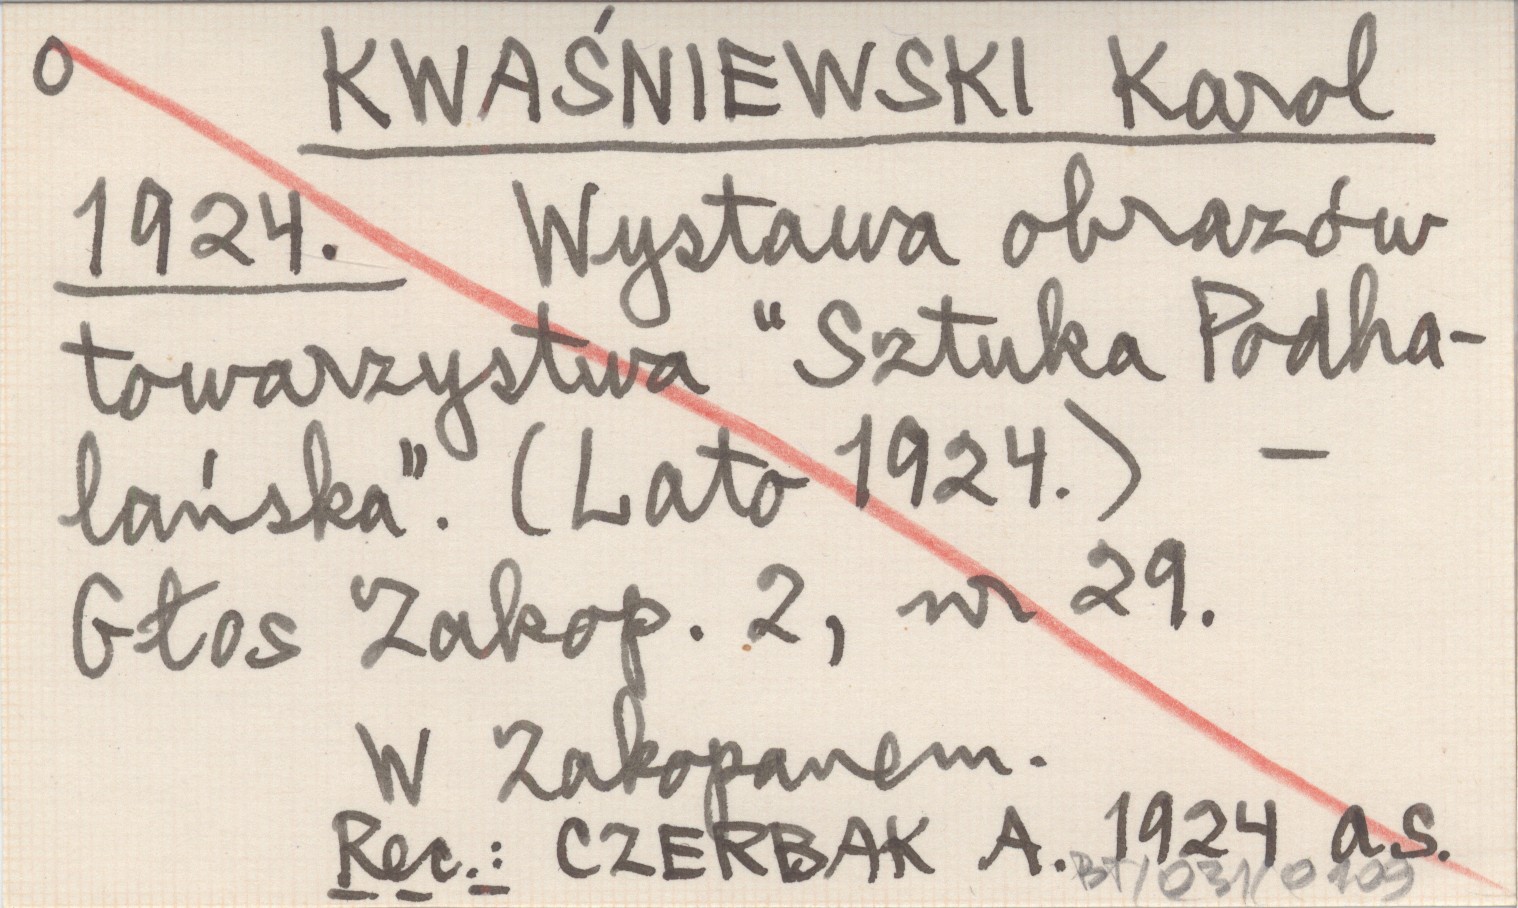 o KWAŚNIEWSKI Karol
1924. Wystawa obrazów
towarzystwa "Sztuka Podha-
lańska". (Lato 1924.) –
Głos Zakop. 2, nr 29.
W Zakopanem.
Rec.: CZERBAK A. 1924 a.s.
BT/031/0109